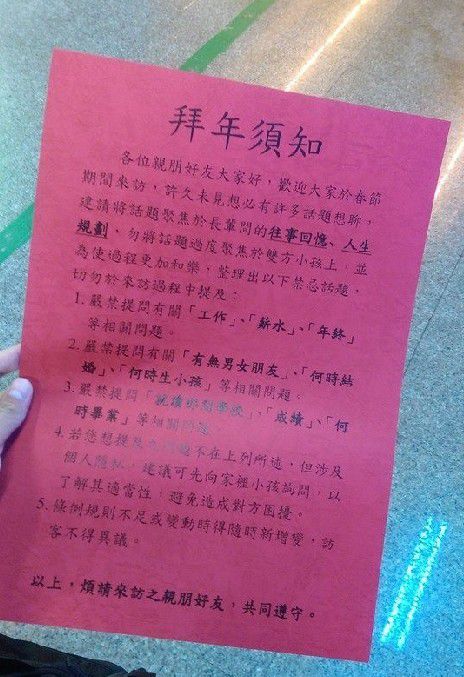 拜年須知
各位親朋好友大家好，歡迎大家於春節
期間來訪，許久未見想必有許多話題想聊，
建議將話題聚焦於長輩間的往事回憶、人生
規劃、勿將話題過度聚焦於雙方小孩上，並
為使過程更加和樂，整理出以下禁忌話題，
切勿於來訪過程中提及：
1. 嚴禁提問有關「工作」、「薪水」、「年終」
等相關問題。
2. 嚴禁提問有關「有無男女朋友」、「何時結
婚」、「何時生小孩」等相關問題。
3. 嚴禁提問「就讀哪間學校」、「成績」、「何
時畢業」等相關問題
4. 若您想提及之問題不在上列所述，但涉及
個人隱私，建議可先向家裡小孩詢問，以
了解其適當性，避免造成對方困擾。
5. 條例規則不足或變動時得隨時新增變，訪
客不得異議。
以上，煩請來訪之親朋好友，共同遵守。